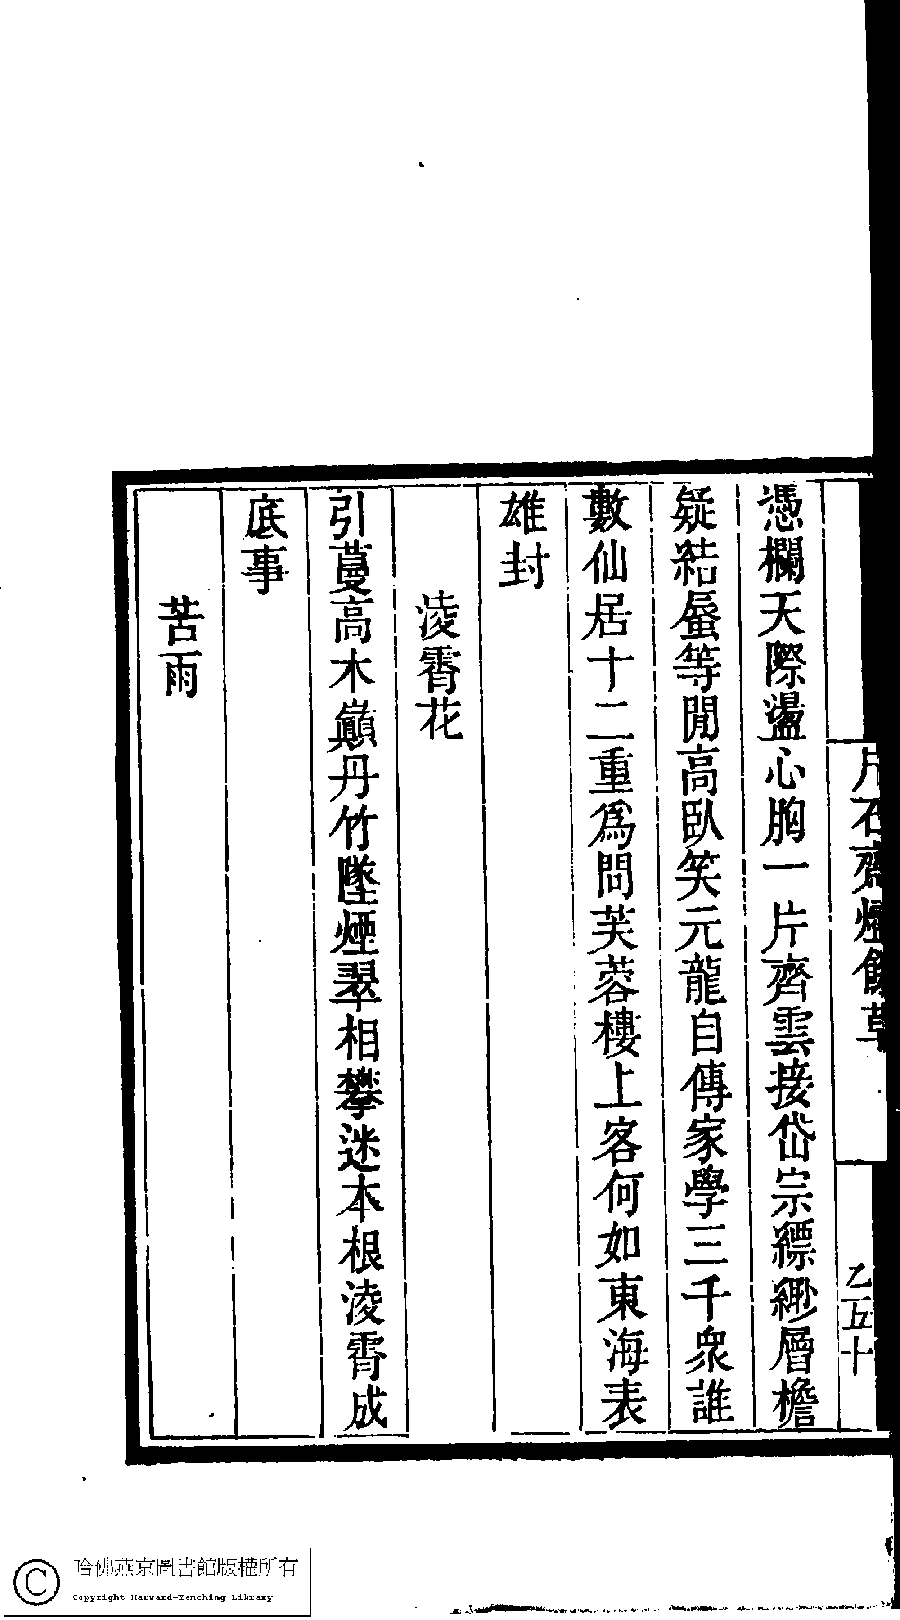 憑欄天際盪心胸一片齊雲接岱宗縹緲層檐
疑結蜃等閒高臥笑元龍自傳家學三千衆誰
數仙居十二重爲問芙蓉樓上客何如東海表
雄封
淩霄花
引蔓高木巔丹竹墜煙翠相攀迷本根淩霄成
底事
苦雨
片石齋燼餘草
乙五十
哈佛燕京圖書館版權所有
Copyright Harvard-Yenching Library